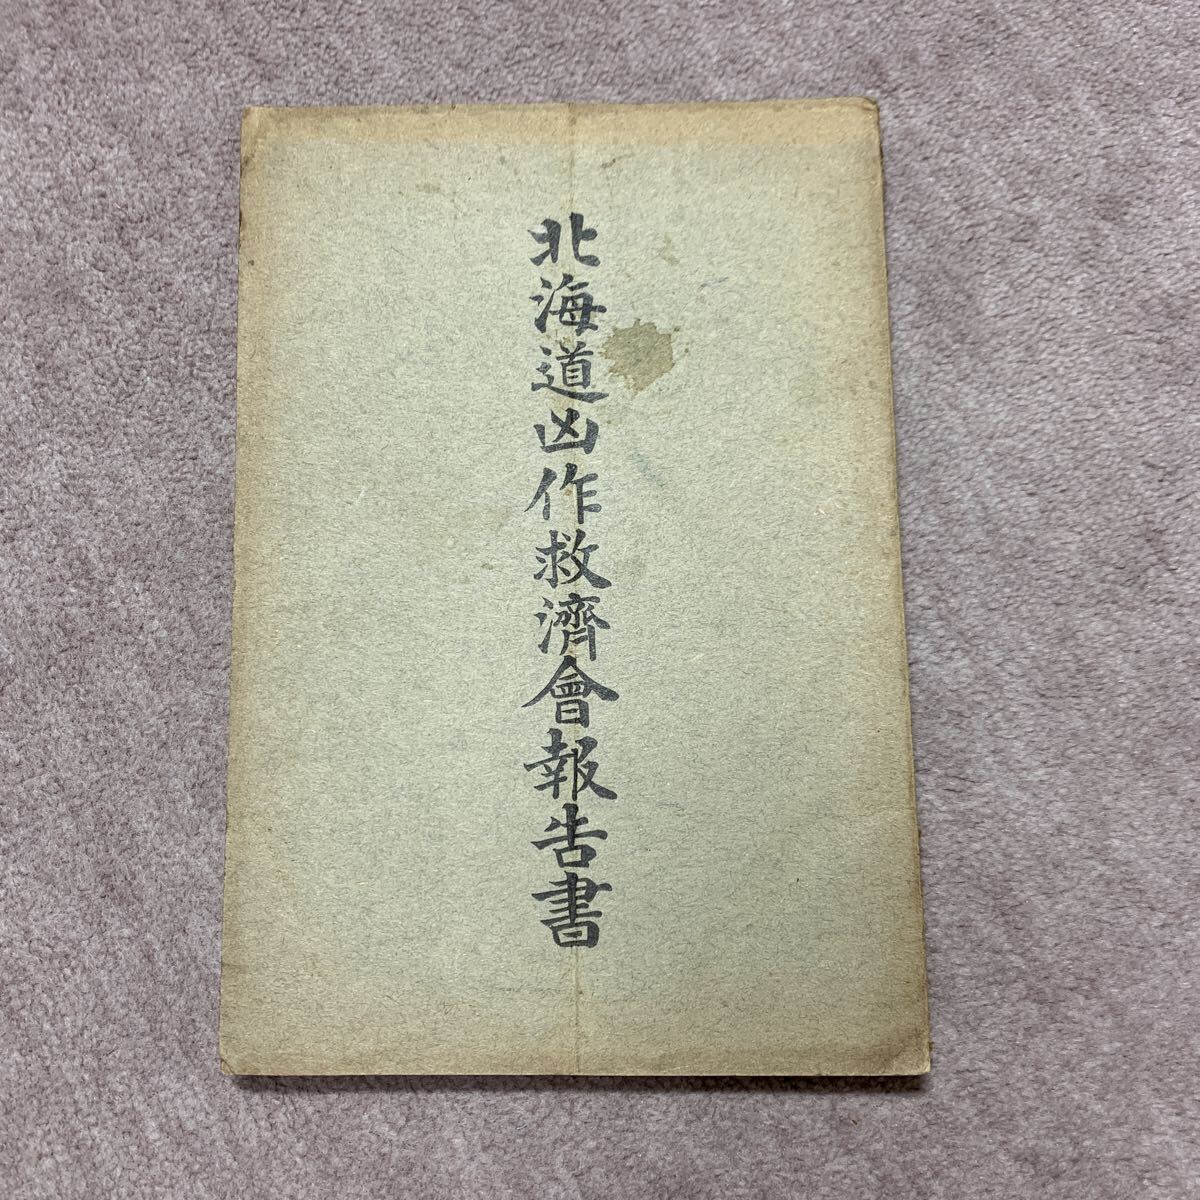 北海道凶作救濟會報告書